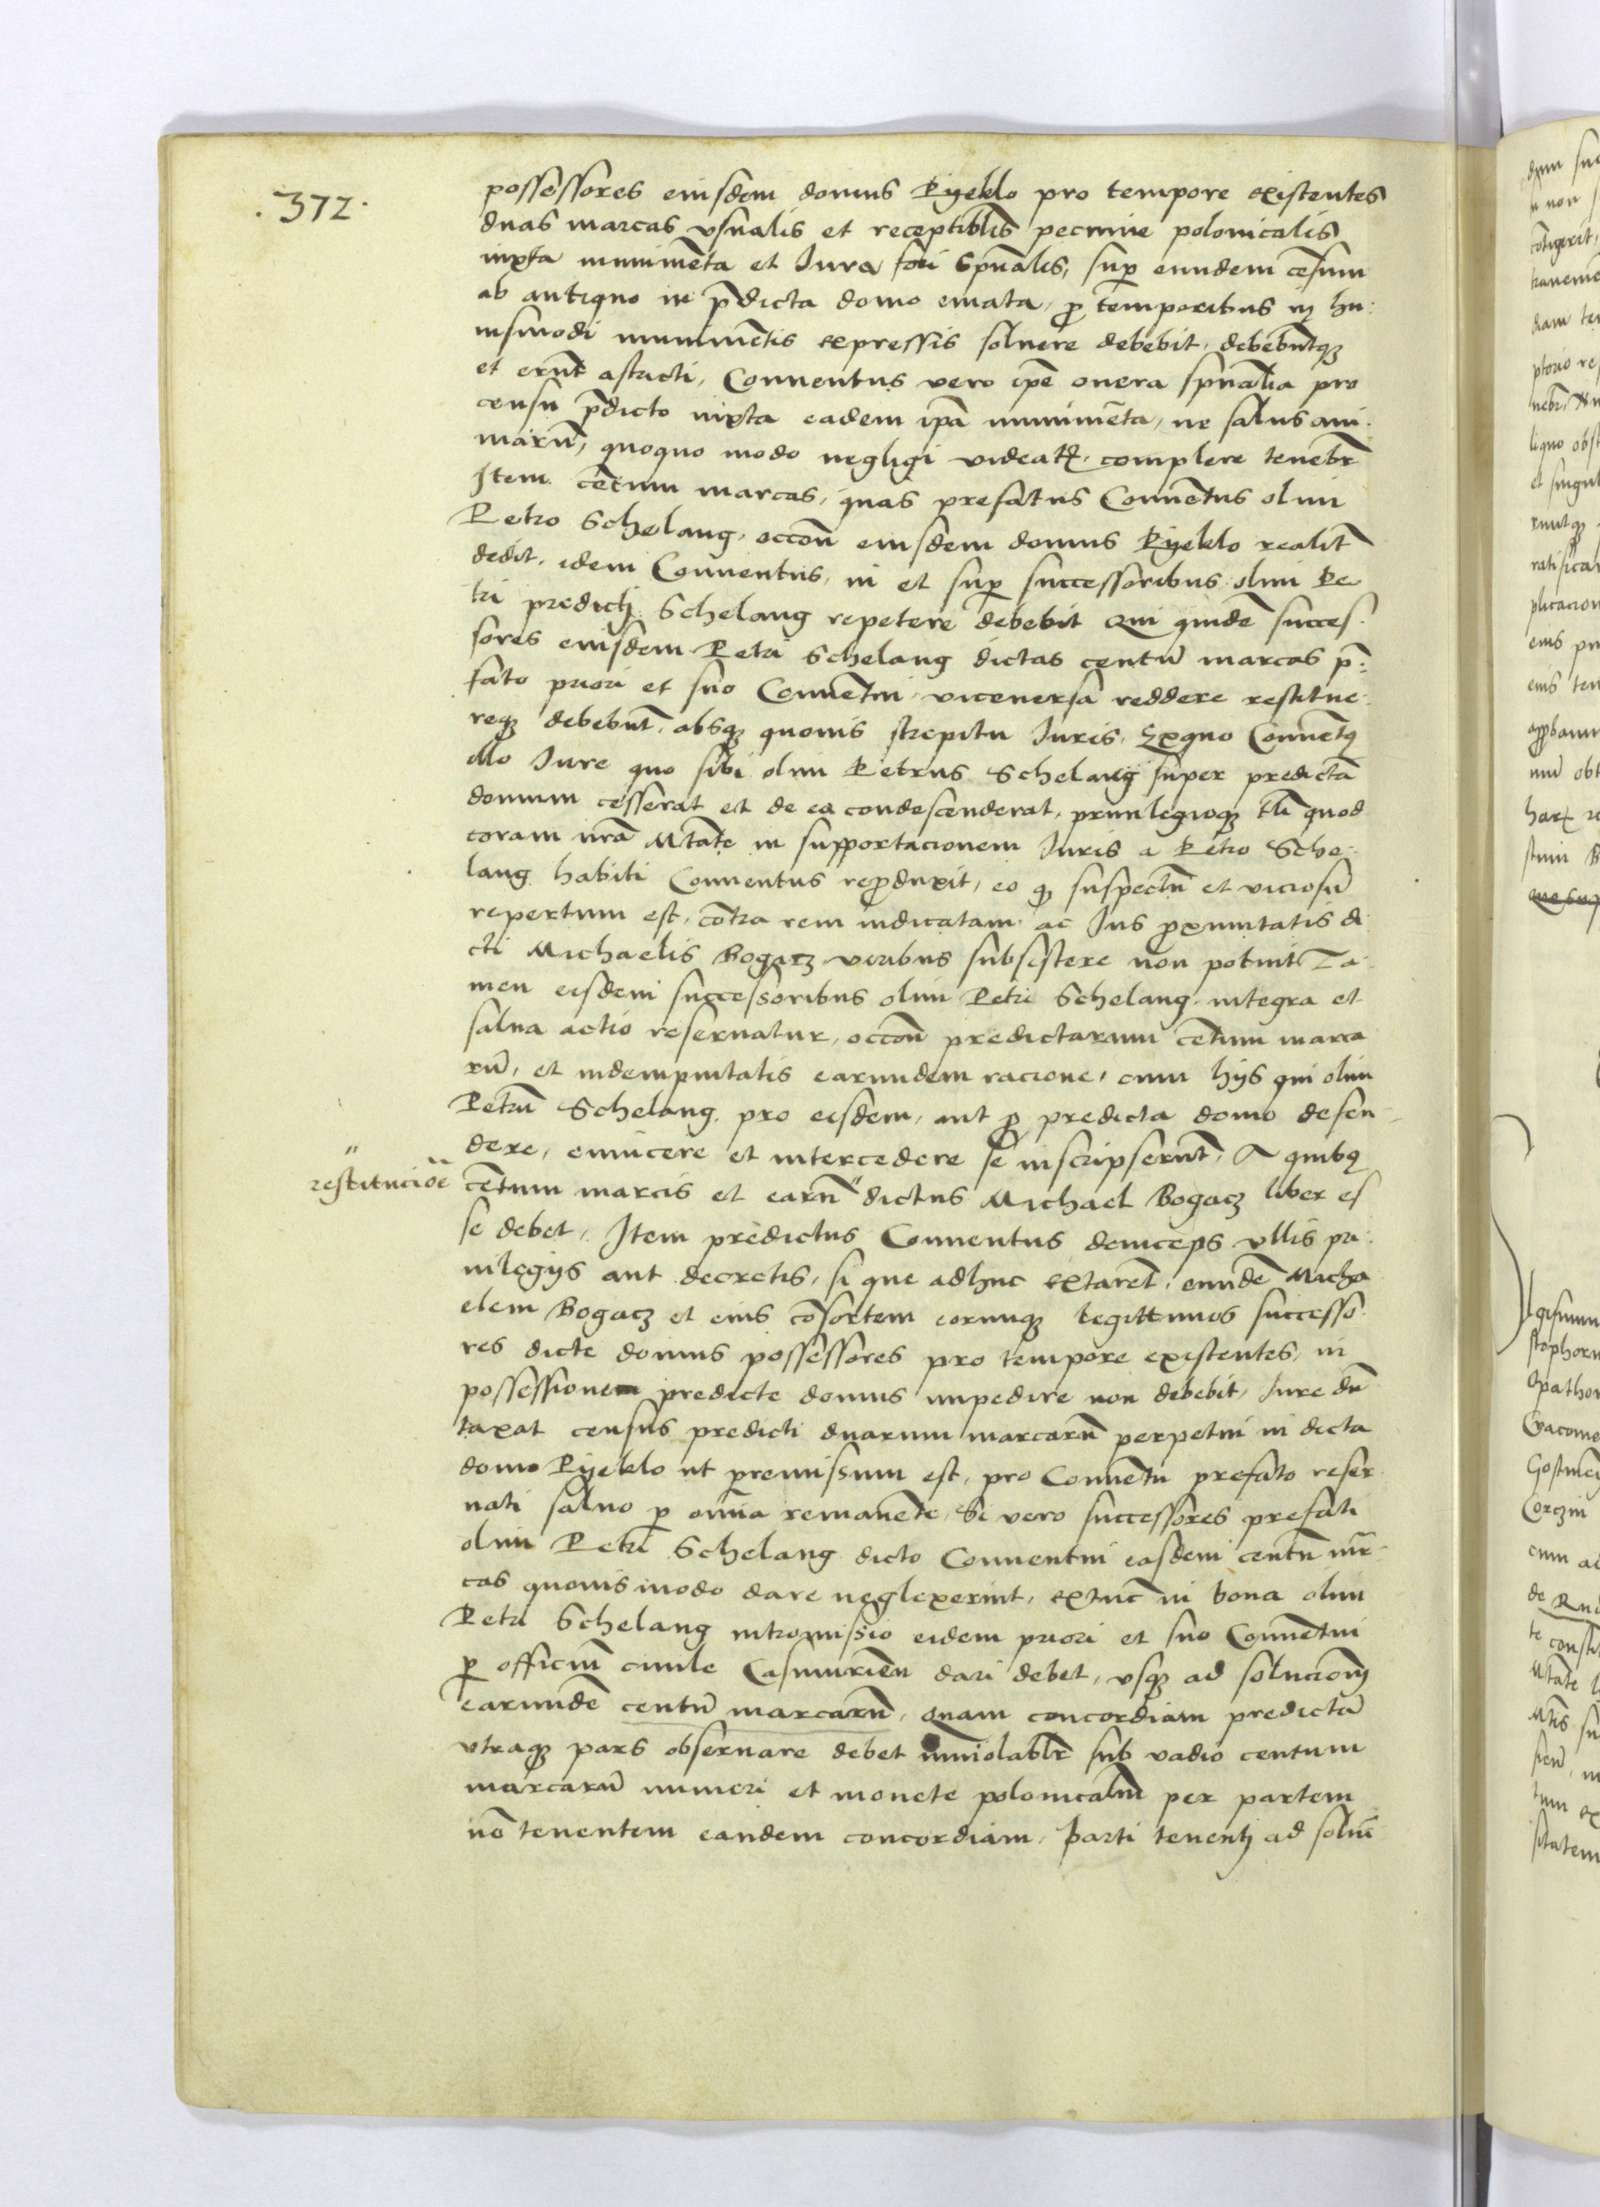 .372.
possessores eiusdem domus Pyeklo pro tempore existentes
duas marcas vsualis et receptiblis pecunie polonicalis
iuxta munimēta et Iura fori Spūalis, sup eundem cēsum
ab antiquo in p̄dicta domo emata, p temporibus in hu-
iusmodi munimētis expressis soluere debebit, debebūtqꝫ
et erūt astricti, Conuentus vero ipē onera spūalia pro
censu p̄dicto iuxta eadem ipā munimēta, ne salus ani-
marū, quoquo modo negligi videatꝝ, complere tenebr̄
Item cētum marcas, quas prefatus Conuētus olim
Petro Schelang, occoū eiusdem domus Pyeklo realit̄
dedit, idem Conuentus, in et sup successoribus olim Pe
tri predicti Schelang repetere debebit Qui quidē succes-
sores eiusdem Petri Schelang dictas centū marcas p̄-
fato priori et suo Conuētui viceuersa reddere restitue-
reqꝫ debebūt, absqꝫ quouis strepitu Iuris, Exquo Conuētꝰ
illo Iure quo sibi olim Petrus Schelang super predictā
domum cesserat et de ea condescenderat, priuilegioqꝫ tli quod
coram nr̄a Mtāte in supportacionem Iuris a Petro Sche-
lang habiti Conuentus reproduxit, eo qꝫ suspectū et viciosū
repertum est, cōtra rem iudicatam ac Ius proximitatis di
cti Michaelis Bogacz viribus subsistere non potuit Ta-
men eisdem successoribus olim Petri Schelang integra et
salua actio reseruatur, occoū predictarum cētum marca
rū, et indempnitatis earundem racione, cum hijs qui olim
Petrū Schelang pro eisdem, aut p predicta domo defen-
dere, euincere et intercedere se inscripserūt, A quibꝰ
restitucioē
centum marcis et earū" dictus Michael Bogacz liber es
se debet, Item predictus Conuentus deinceps vllis pri-
uilegijs aut decretis, si que adhuc extarēt, eundē Micha
elem Bogacz et eius cōsortem eorumqꝫ legittimos successo
res dicte domus possessores pro tempore existentes, in
possessionem predicte domus impedire non debebit, Iure dū
taxat census predicti duarum marcarū perpetui in dicta
domo Pyeklo ut premissum est, pro Conuētu prefato reser
uati saluo p omīa remanēte, Si vero successores prefati
olim Petri Schelang dicto Conuentui easdem centū mr̄-
cas quouismodo dare neglexerint, extūc in bona olim
Petri Schelang intromissio eidem priori et suo Conuētui
p officiū ciuile Casimirieñ dari debet, vsqꝫ ad solucionē
earundē centū marcarū, Quam concordiam predictā
vtraqꝫ pars obseruare debet inuiolablr̄ sub vadio centum
marcarū numeri et monete polonicaliū per partem
nō tenentem eandem concordiam, parti tenenti ad soluē